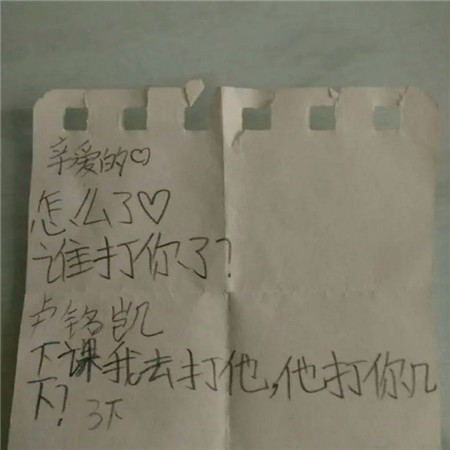 亲爱的♡
怎么了♡
谁打你了？
卢铭凯
下课我去打他，他打你几
下？ 3下